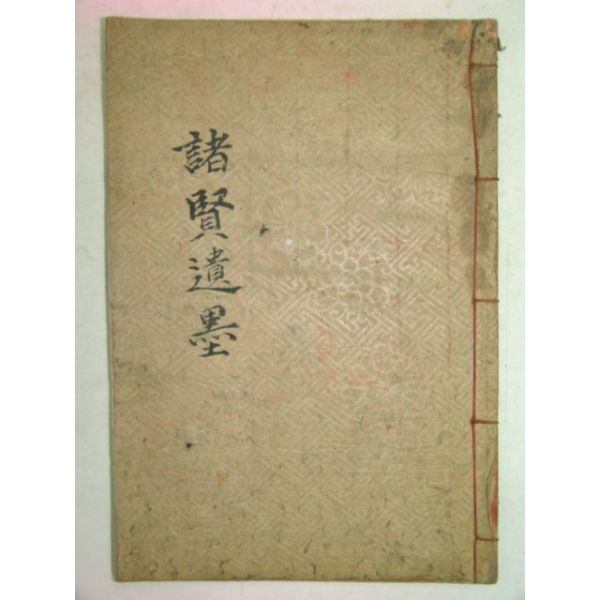 諸賢遺墨